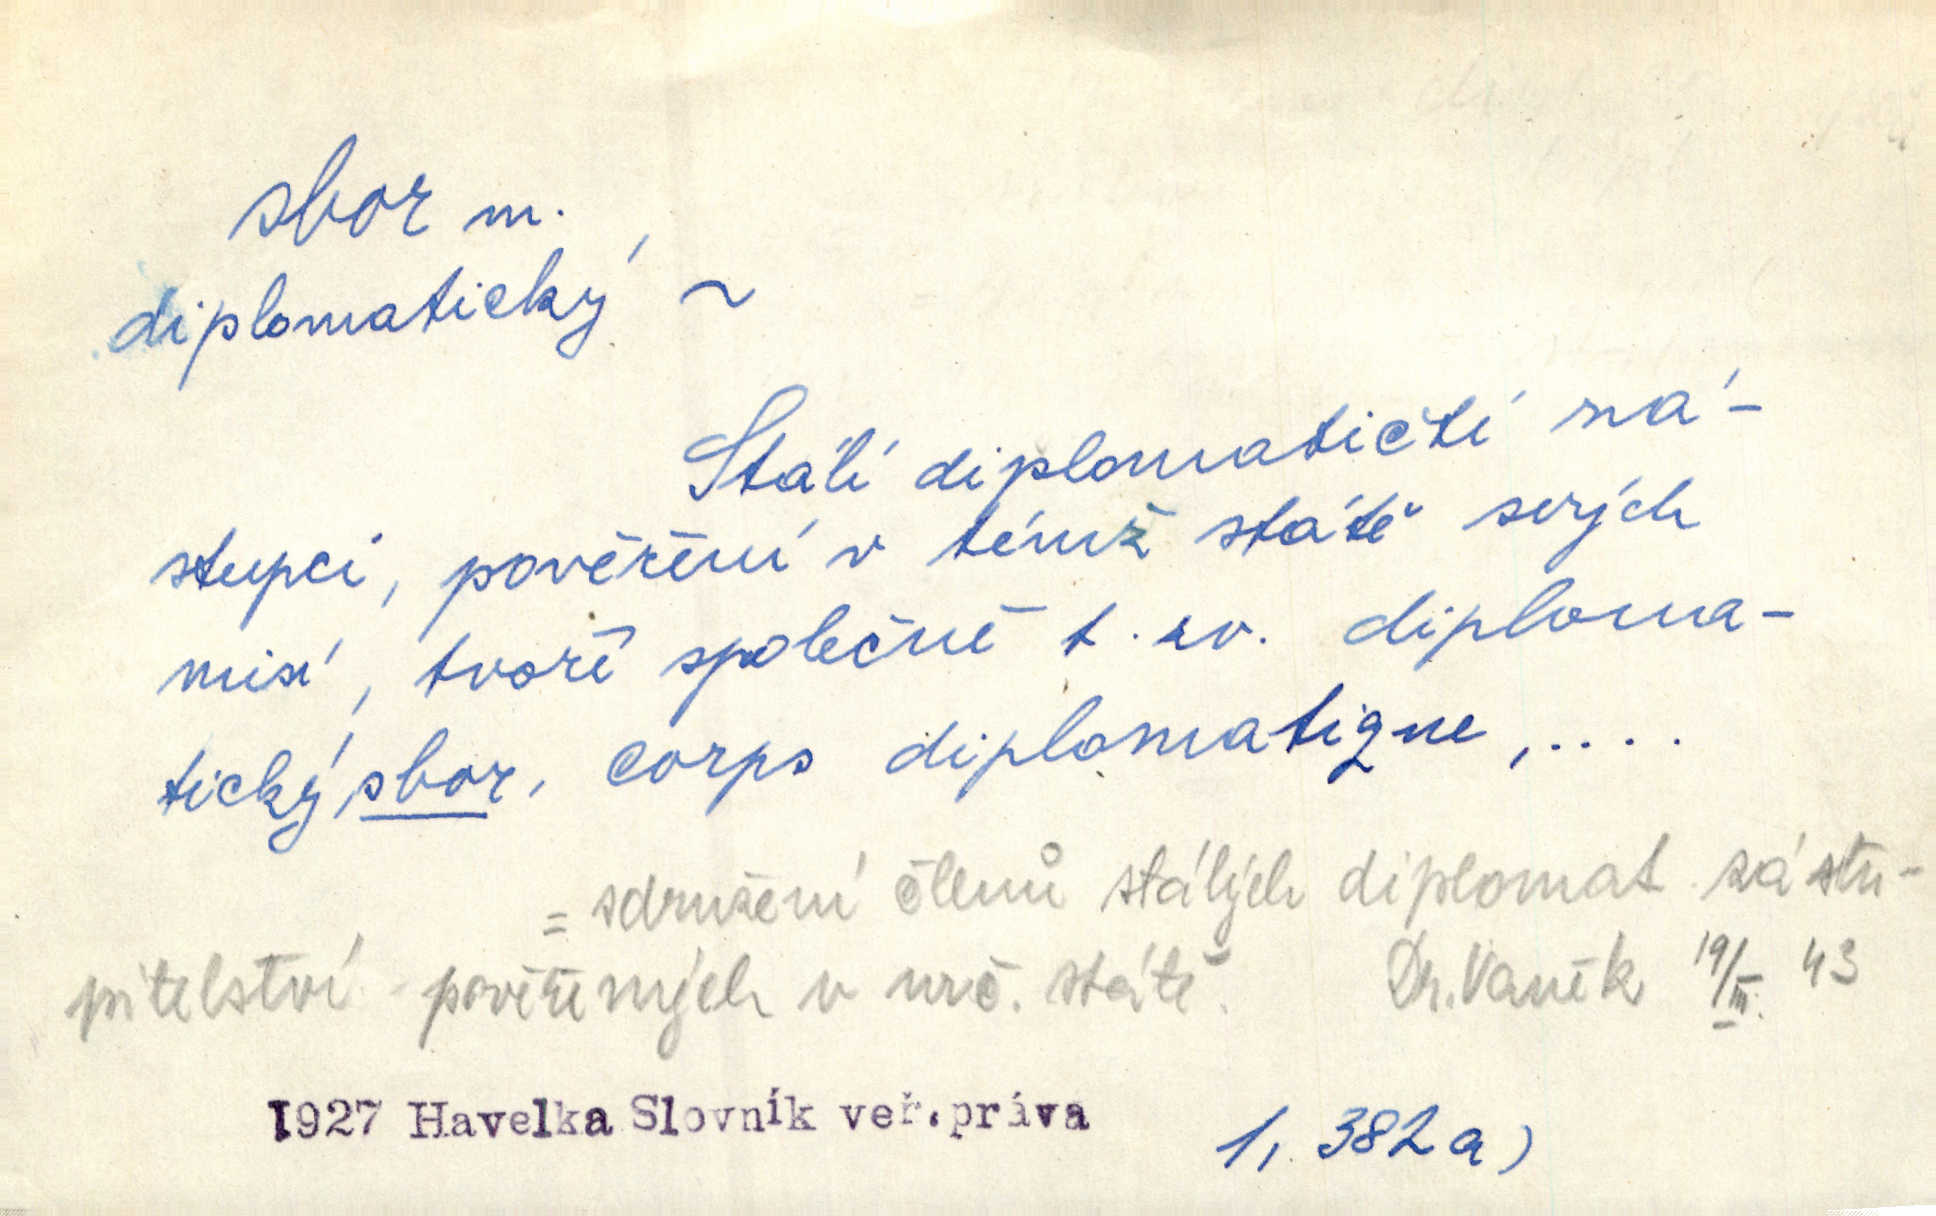 sbor m.
diplomatický ~
Stálí diplomatičtí zá-
stupci, pověření v témž státě svých
misí, tvoří společně t. zv. diploma-
tický sbor, corps diplomatique, ....
= sdružení členů stálých diplomat. zástu-
pitelství pověřených v urč. státě. Dr. Vaněk 19/III. 43
1927 Havelka Slovník veř.práva 1, 382 a)